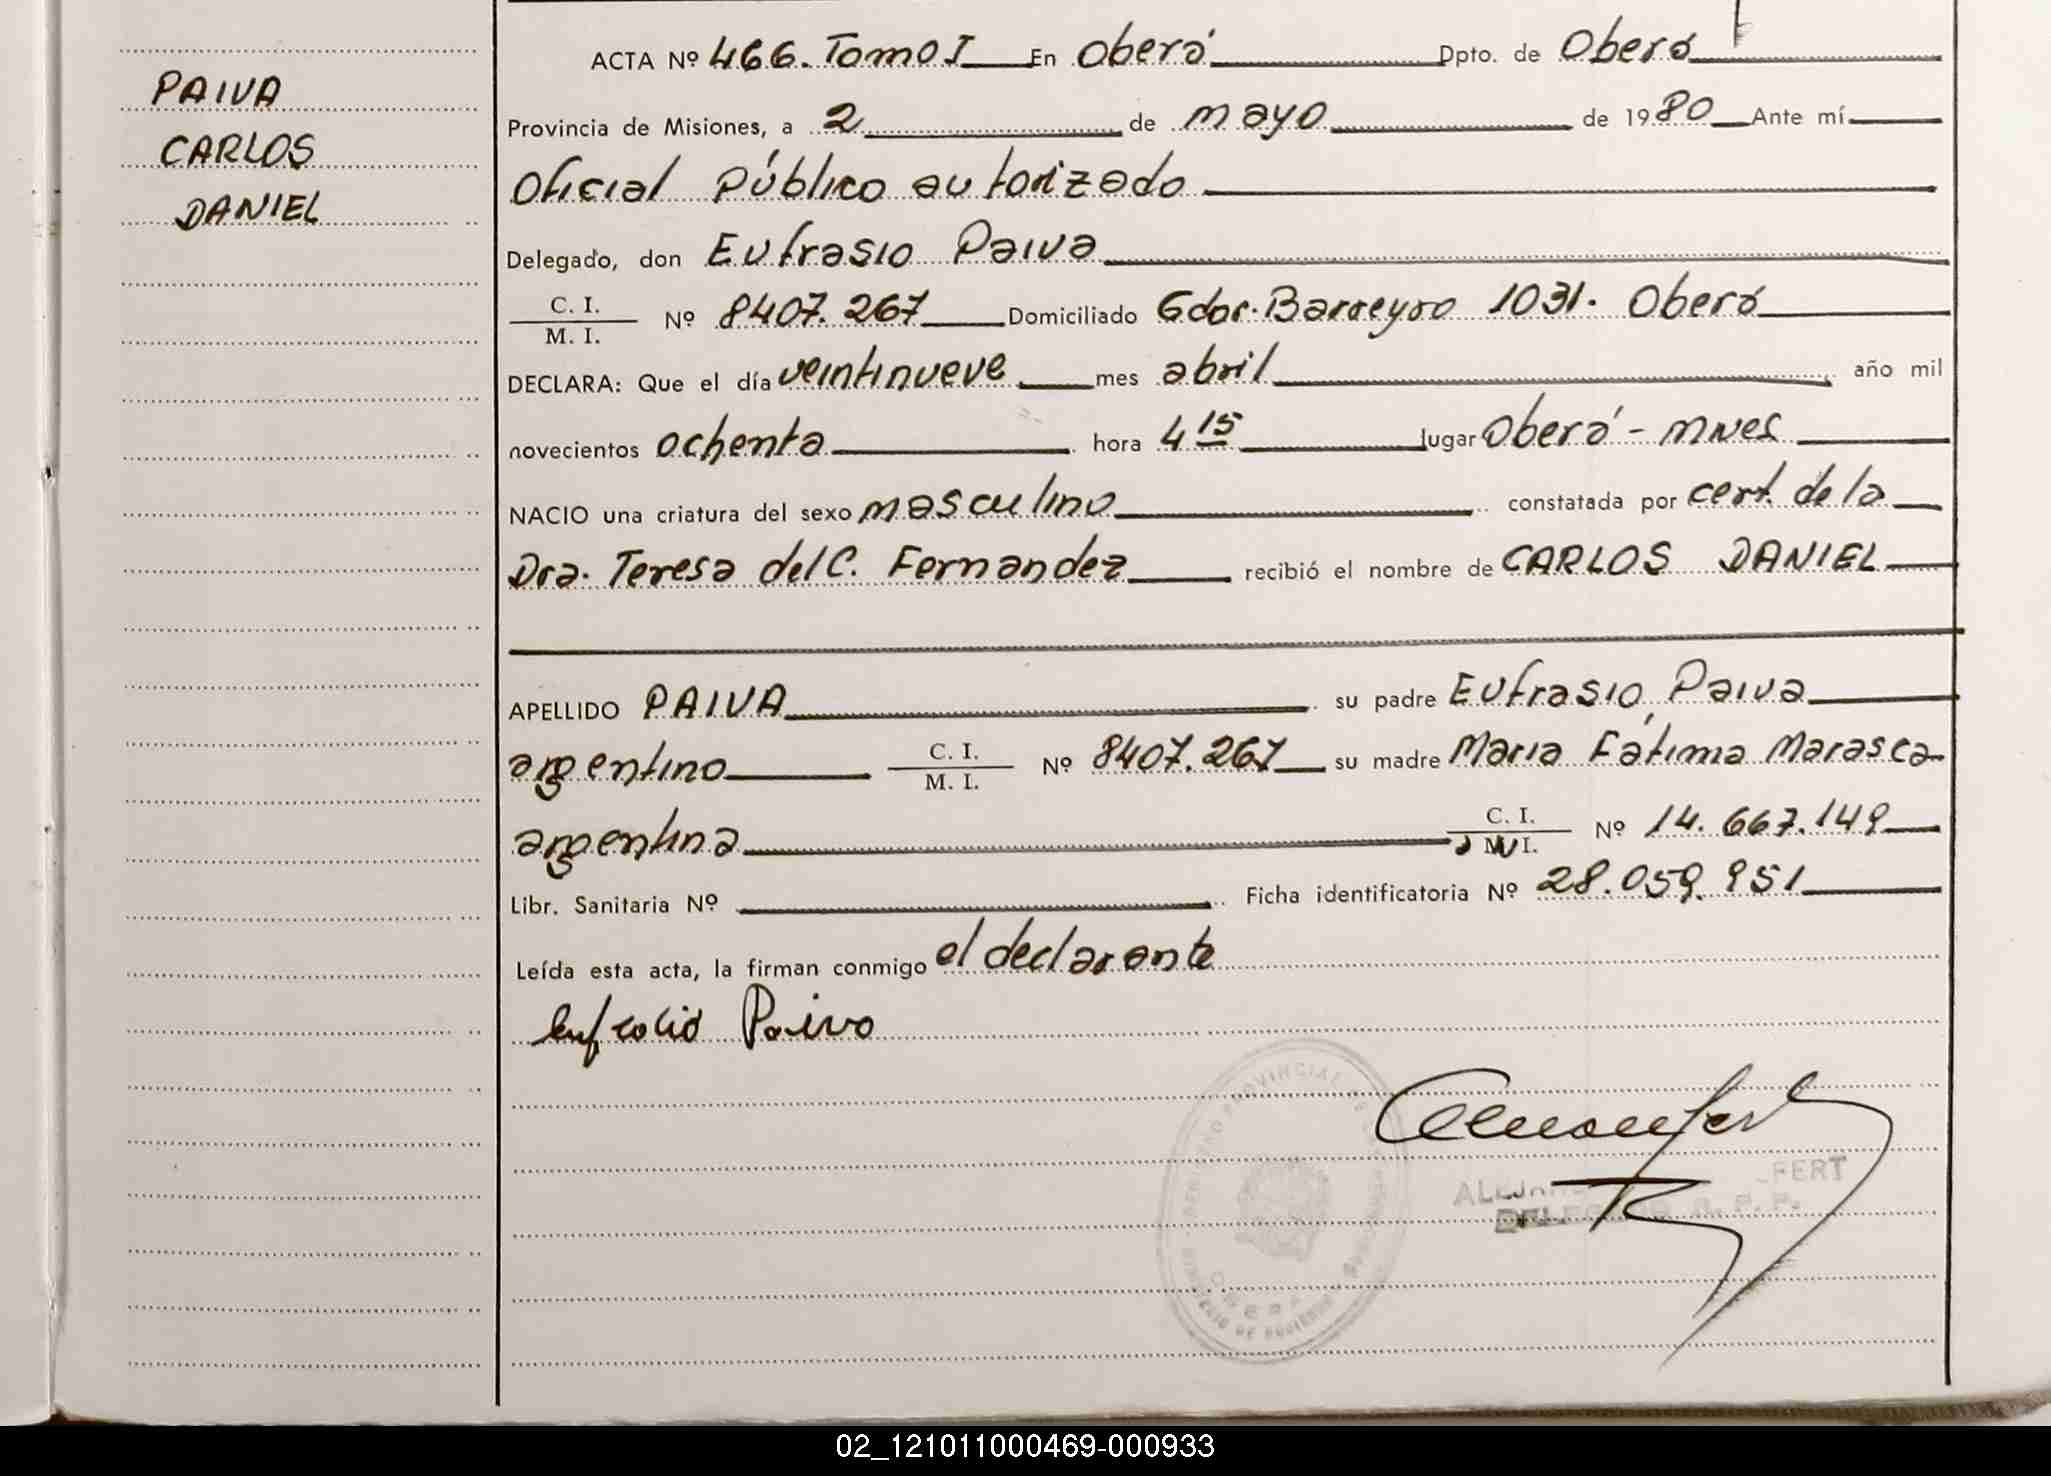 PAIVA
CARLOS
DANIEL
ACTA Nº 466. Tomo I En Oberá Dpto. de Oberá
Provincia de Misiones, a 2 de mayo de 1980 Ante mí
Oficial Público autorizado
Delegado, don Eufrasio Paiva
C. I.
M. I. Nº 8407.267 Domiciliado Gdor. Barreyro 1031. Oberá
DECLARA: Que el día veintinueve mes abril año mil
novecientos ochenta hora 4 15 lugar Oberá - Mnes
NACIO una criatura del sexo masculino constatada por cert. de la
Dra. Teresa del C. Fernandez recibió el nombre de CARLOS DANIEL
APELLIDO PAIVA su padre Eufrasio Paiva
argentino C. I. M. I. Nº 8407.267 su madre María Fátima Marasca
argentina C. I. M. I. Nº 14.667.149
Libr. Sanitaria Nº Ficha identificatoria Nº 28.059.951
Leída esta acta, la firman conmigo el declarante
Eufrasio Paiva
OBERA
02_121011000469-000933